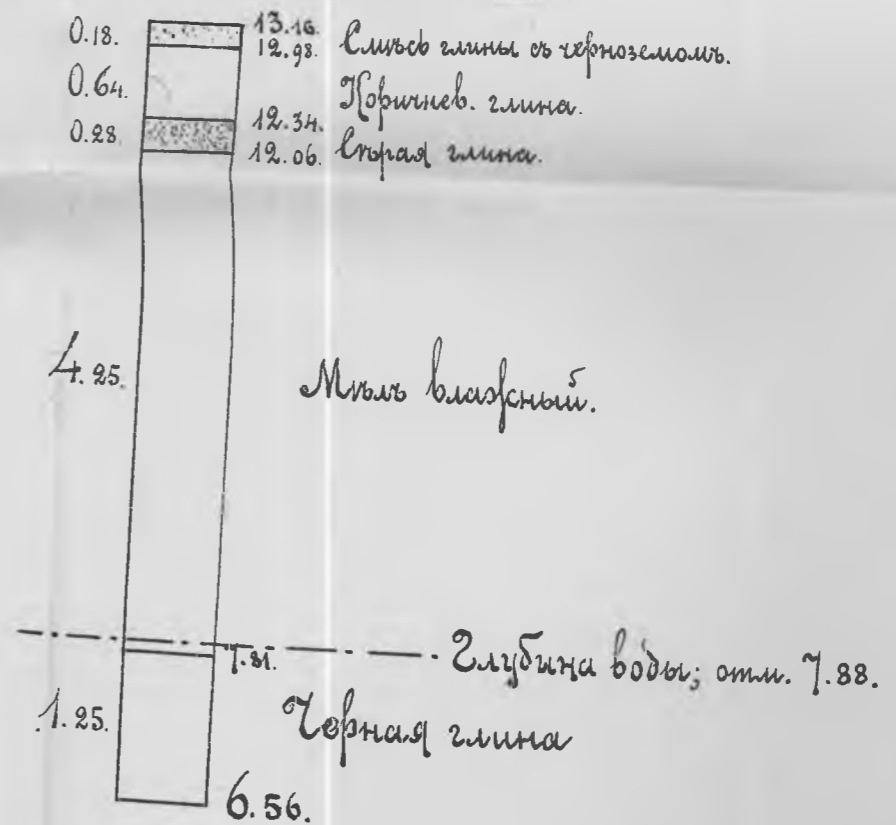 0.18.
13.16.
12.98. Смѣсь глины съ черноземомъ.
0.64.
Коричнев. глина.
0.28.
12.34.
12.06. Сѣрая глина.
4.25.
Мѣлъ влажный.
7.81.
Глубина воды; отм. 7.88.
1.25.
Черная глина
6.56.